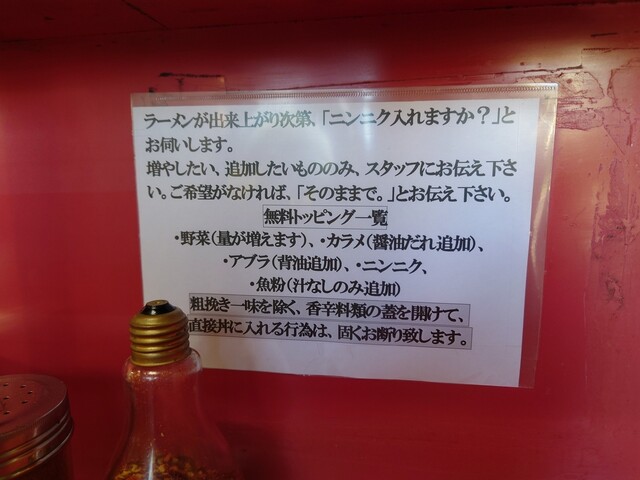 ラーメンが出来上がり次第、「ニンニク入れますか？」と
お伺いします。
増やしたい、追加したいもののみ、スタッフにお伝え下さ
い。ご希望がなければ、「そのままで。」とお伝え下さい。
無料トッピング一覧
・野菜（量が増えます）、・カラメ（醤油だれ追加）、
・アブラ（背油追加）、・ニンニク、
・魚粉（汁なしのみ追加）
粗挽き一味を除く、香辛料類の蓋を開けて、
直接丼に入れる行為は、固くお断り致します。